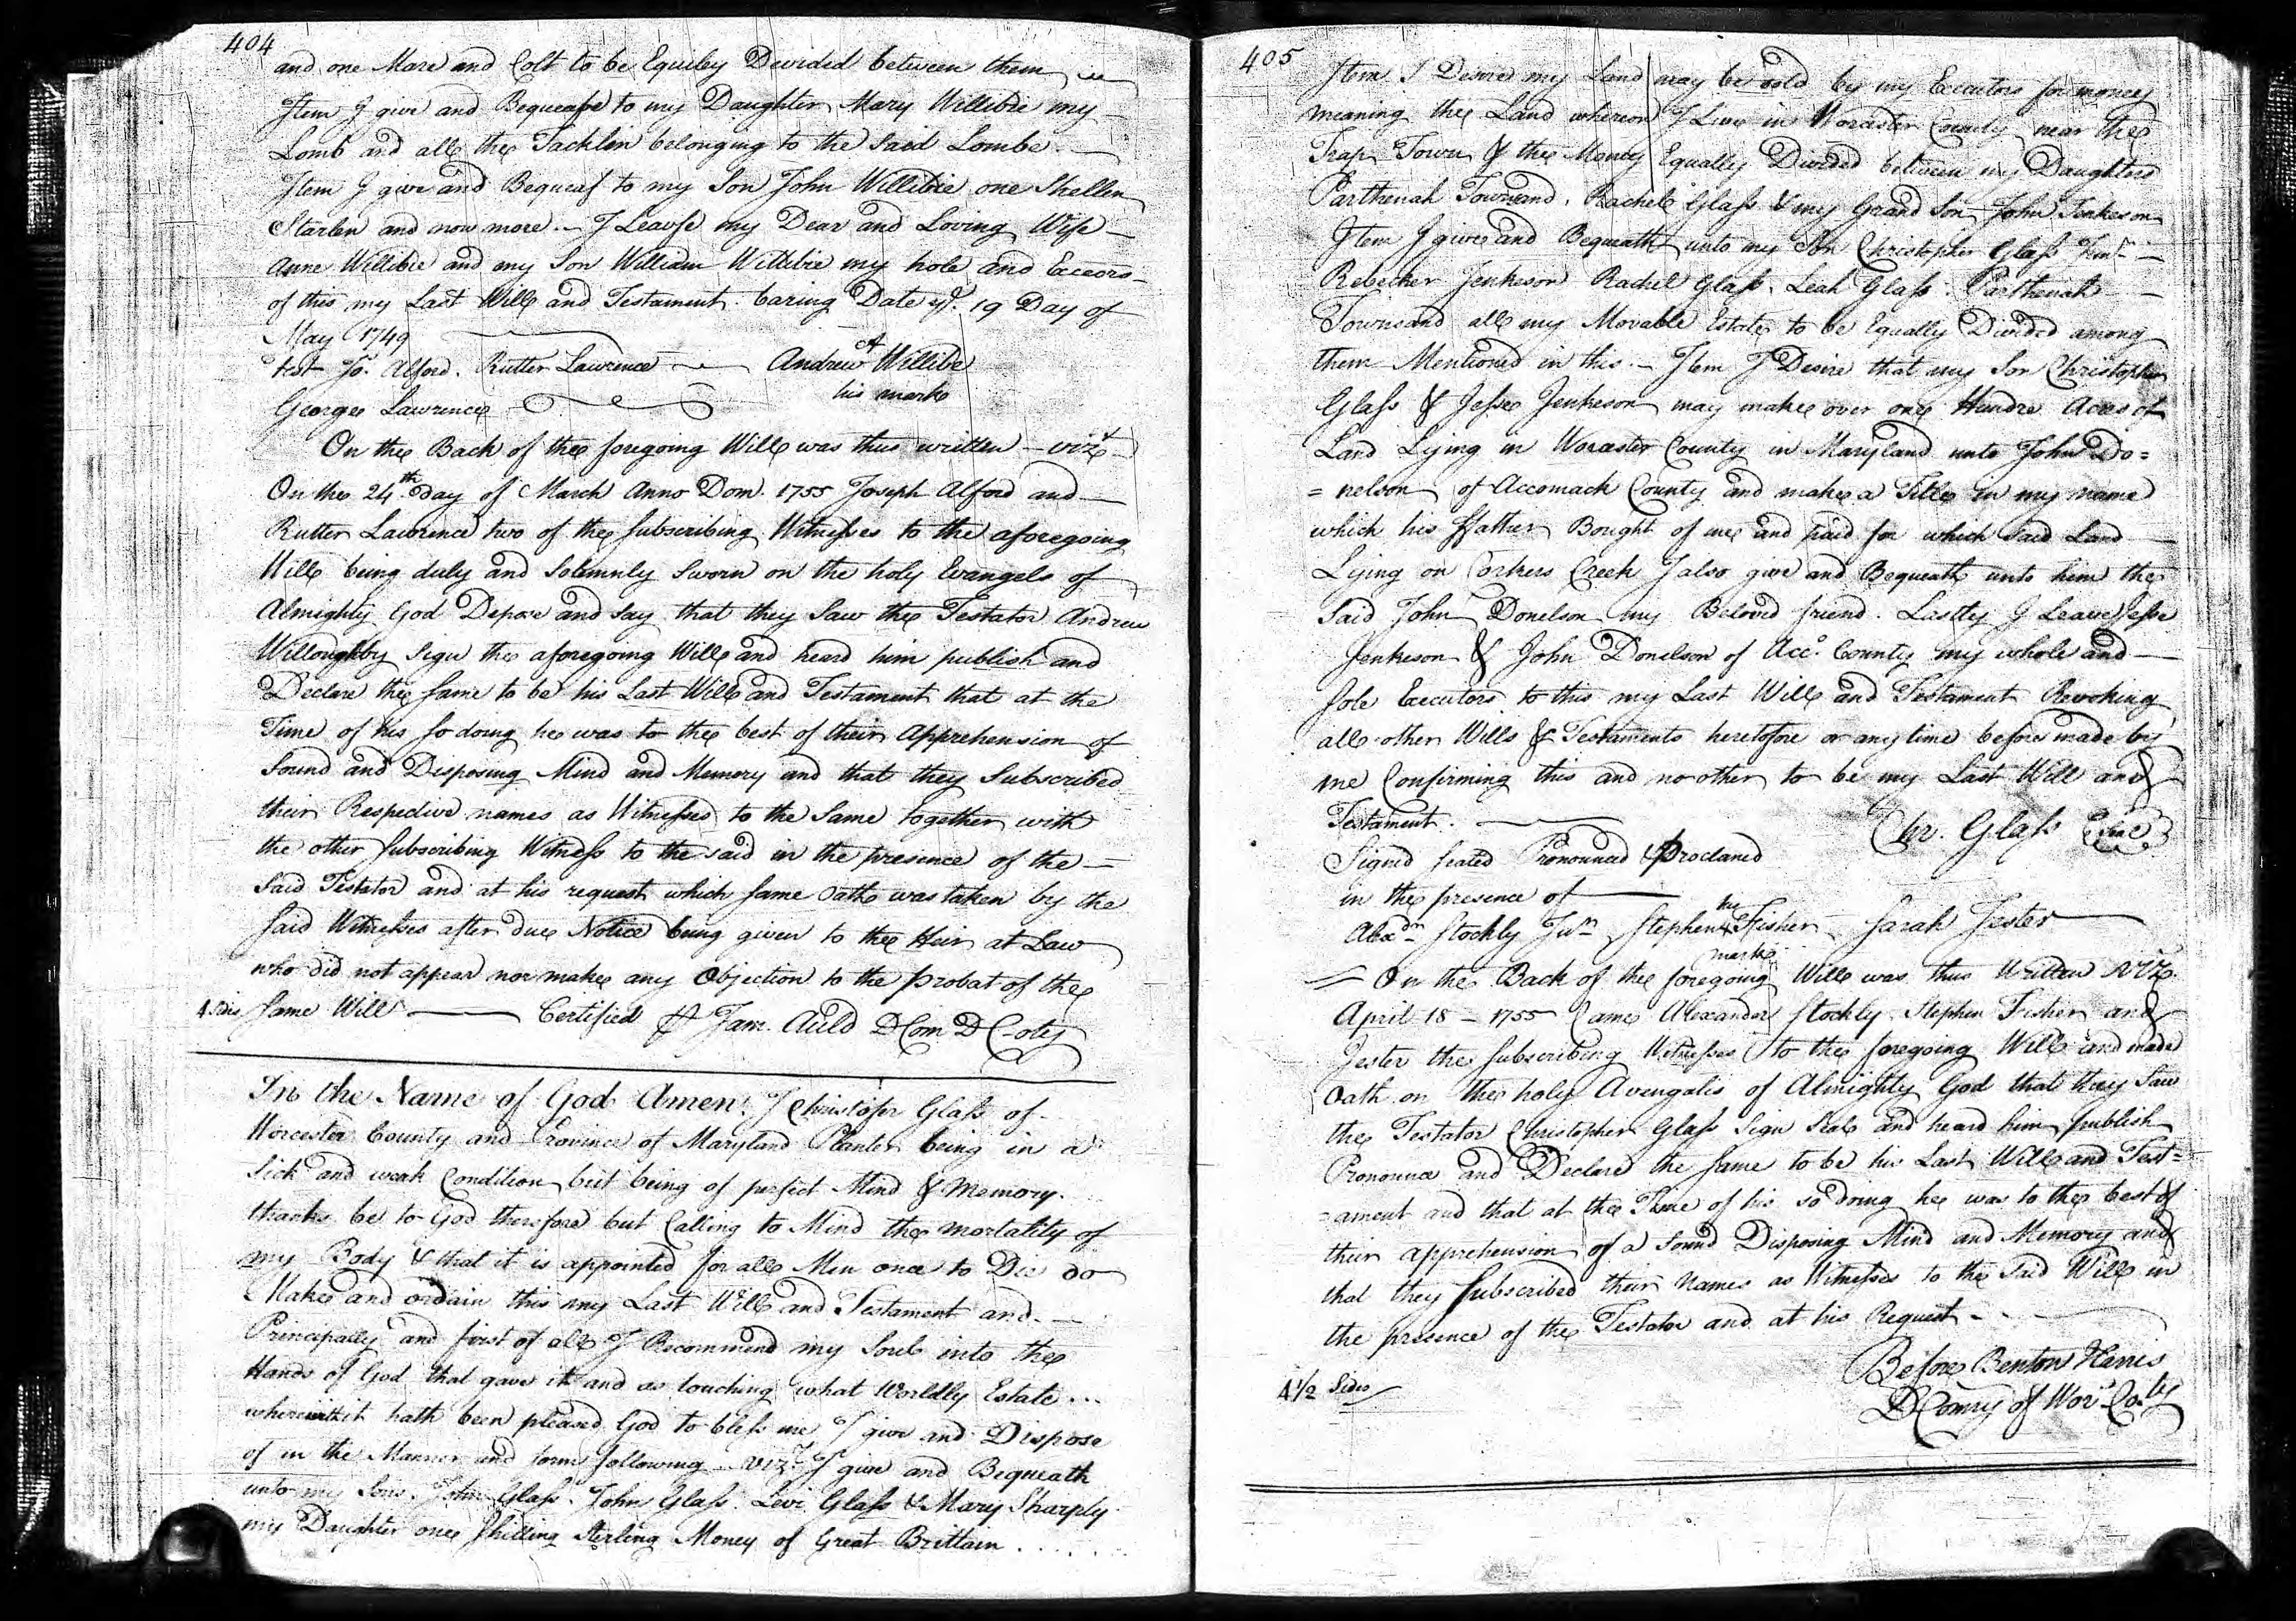 404
and one Mare and Colt to be Equiley Devided between them
Item I give and Bequeafe to my Daughter Mary Willibie my
Lomb and all the Tacklin belonging to the Said Lombe.
Item I give and Bequeaf to my Son John Willibie one Shellen
Starlen and now more. I Leavse my Dear and Loving Wife
Anne Willibie and my Son William Willibie my hole and Exceors
of this my Last Will and Testament baring Date ye. 19 Day of
May 1749
test Jos. Alford. Rutter Lawrence Andrew A Willibe
George Lawrence his mark
On the Back of the foregoing Will was thus written vizt
On the 24th. Day of March Anno Dom. 1755 Joseph Alford and
Rutter Lawrence two of the Subscribing Witnesses to the aforegoing
Will being duly and Solemnly Sworn on the holy Evangels of
Almighty God Depose and say that they Saw the Testator Andrew
Willoughby Sign the aforegoing Will and heard him publish and
Declare the same to be his Last Will and Testament that at the
Time of his so doing he was to the best of their Apprehension of
Sound and Disposing Mind and Memory and that they Subscribed
their Respective names as Witnesses to the Same together with
the other Subscribing Witness to the said in the presence of the
Said Testator and at his request which same Oath was taken by the
said Witnesses after due Notice being given to the Heir at Law
who did not appear nor make any Objection to the probat of the
4 Sides Same Will Certified Jam. Auld D Com D C-oty
In the Name of God Amen. I Christofor Glass of
Worcester County and Province of Maryland Planter being in a
Sick and weak Condition but being of perfect Mind & Memory.
thanks be to God therefore but Calling to Mind the mortality of
my Body & that it is appointed for all Men once to Die do
Make and ordain this my Last Will and Testament and
Principally and first of all I Recommend my Soul into the
Hands of God that gave it and as touching what Worldly Estate ...
wherewith it hath been pleased God to bless me I give and Dispose
of in the Manner and form following vizt. I give and Bequeath
unto my Sons. John Glass. John Glass. Levi Glass & Mary Sharply
my Daughter one shilling Sterling Money of Great Brittain .....
405
Item I Desire my Land may be sold by my Executors for money
meaning the Land whereon I Live in Worcester County near the
Trap Town & the Money Equally Divided between my Daughters
Parthenah Townsand, Rachel Glass & my Grand Son John Jenkeson
Item I give and Bequeath unto my Son Christopher Glass Junr.
Rebecker Jenkeson Rachel Glass. Leah Glass. Parthenah
Townsand all my Movable Estate to be Equally Divided among
them Mentioned in this. Item I Desire that my Son Christopher
Glass & Jesse Jenkeson may make over one Hundre Acres of
Land Lying in Worcester County in Maryland unto John Do=
=nelson of Accomack County and make a Title in my name
which his ffather Bought of me and paid for which Said Land
Lying on Corkers Creek I also give and Bequeath unto him the
Said John Donelson my Beloved friend. Lastly I Leave Jesse
Jenkeson & John Donelson of Acco. County my whole and
Sole Executors to this my Last Will and Testament Revoking
all other Wills & Testaments heretofore or any time before made by
me Confirming this and no other to be my Last Will and
Testament. Chr. Glass Seal
Signed sealed Pronounced & Proclamed
in the presence of
Alexdr. Stockly Junr. Stephen his mark Fisher Sarah Jester
On the Back of the foregoing Will was thus Written Viz
April 18 - 1755 Came Alexander Stockly Stephen Fisher and
Jester the Subscribing Witnesses to the foregoing Will and made
Oath on the holy Avengalis of Almighty God that they Saw
the Testator Christopher Glass Sign Seal and heard him publish
Pronounce and Declare the same to be his Last Will and Test=
=ament and that at the Time of his so doing he was to the best of
their apprehension of a Sound Disposing Mind and Memory and
that they Subscribed their Names as Witnesses to the Said Will in
the presence of the Testator and at his Request
Before Benton Harris
4 1/2 Sides D Comry of Worr. Coty